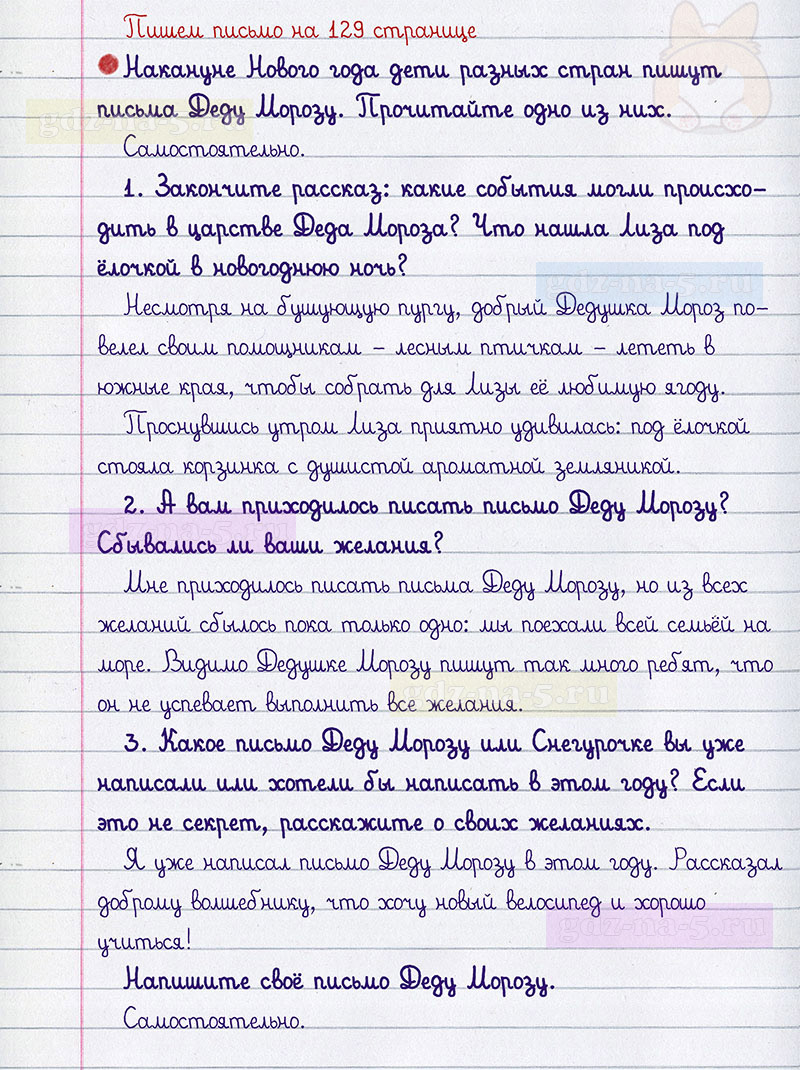 Пишем письмо на 129 странице
Накануне Нового года дети разных стран пишут
письма Деду Морозу. Прочитайте одно из них.
gdz-na-5.ru
Самостоятельно.
1. Закончите рассказ: какие события могли происхо-
дить в царстве Деда Мороза? Что нашла Лиза под
ёлочкой в новогоднюю ночь?
gdz-na-5.ru
Несмотря на бушующую пургу, добрый Дедушка Мороз по-
велел своим помощникам – лесным птичкам – лететь в
южные края, чтобы собрать для Лизы её любимую ягоду.
Проснувшись утром Лиза приятно удивилась: под ёлочкой
стояла корзинка с душистой ароматной земляникой.
2. А вам приходилось писать письмо Деду Морозу?
gdz-na-5.ru
Сбывались ли ваши желания?
Мне приходилось писать письма Деду Морозу, но из всех
желаний сбылось пока только одно: мы поехали всей семьёй на
море. Видимо Дедушке Морозу пишут так много ребят, что
он не успевает выполнить все желания.
gdz-na-5.ru
3. Какое письмо Деду Морозу или Снегурочке вы уже
написали или хотели бы написать в этом году? Если
это не секрет, расскажите о своих желаниях.
Я уже написал письмо Деду Морозу в этом году. Рассказал
доброму волшебнику, что хочу новый велосипед и хорошо
gdz-na-5.ru
учиться!
Напишите своё письмо Деду Морозу.
Самостоятельно.